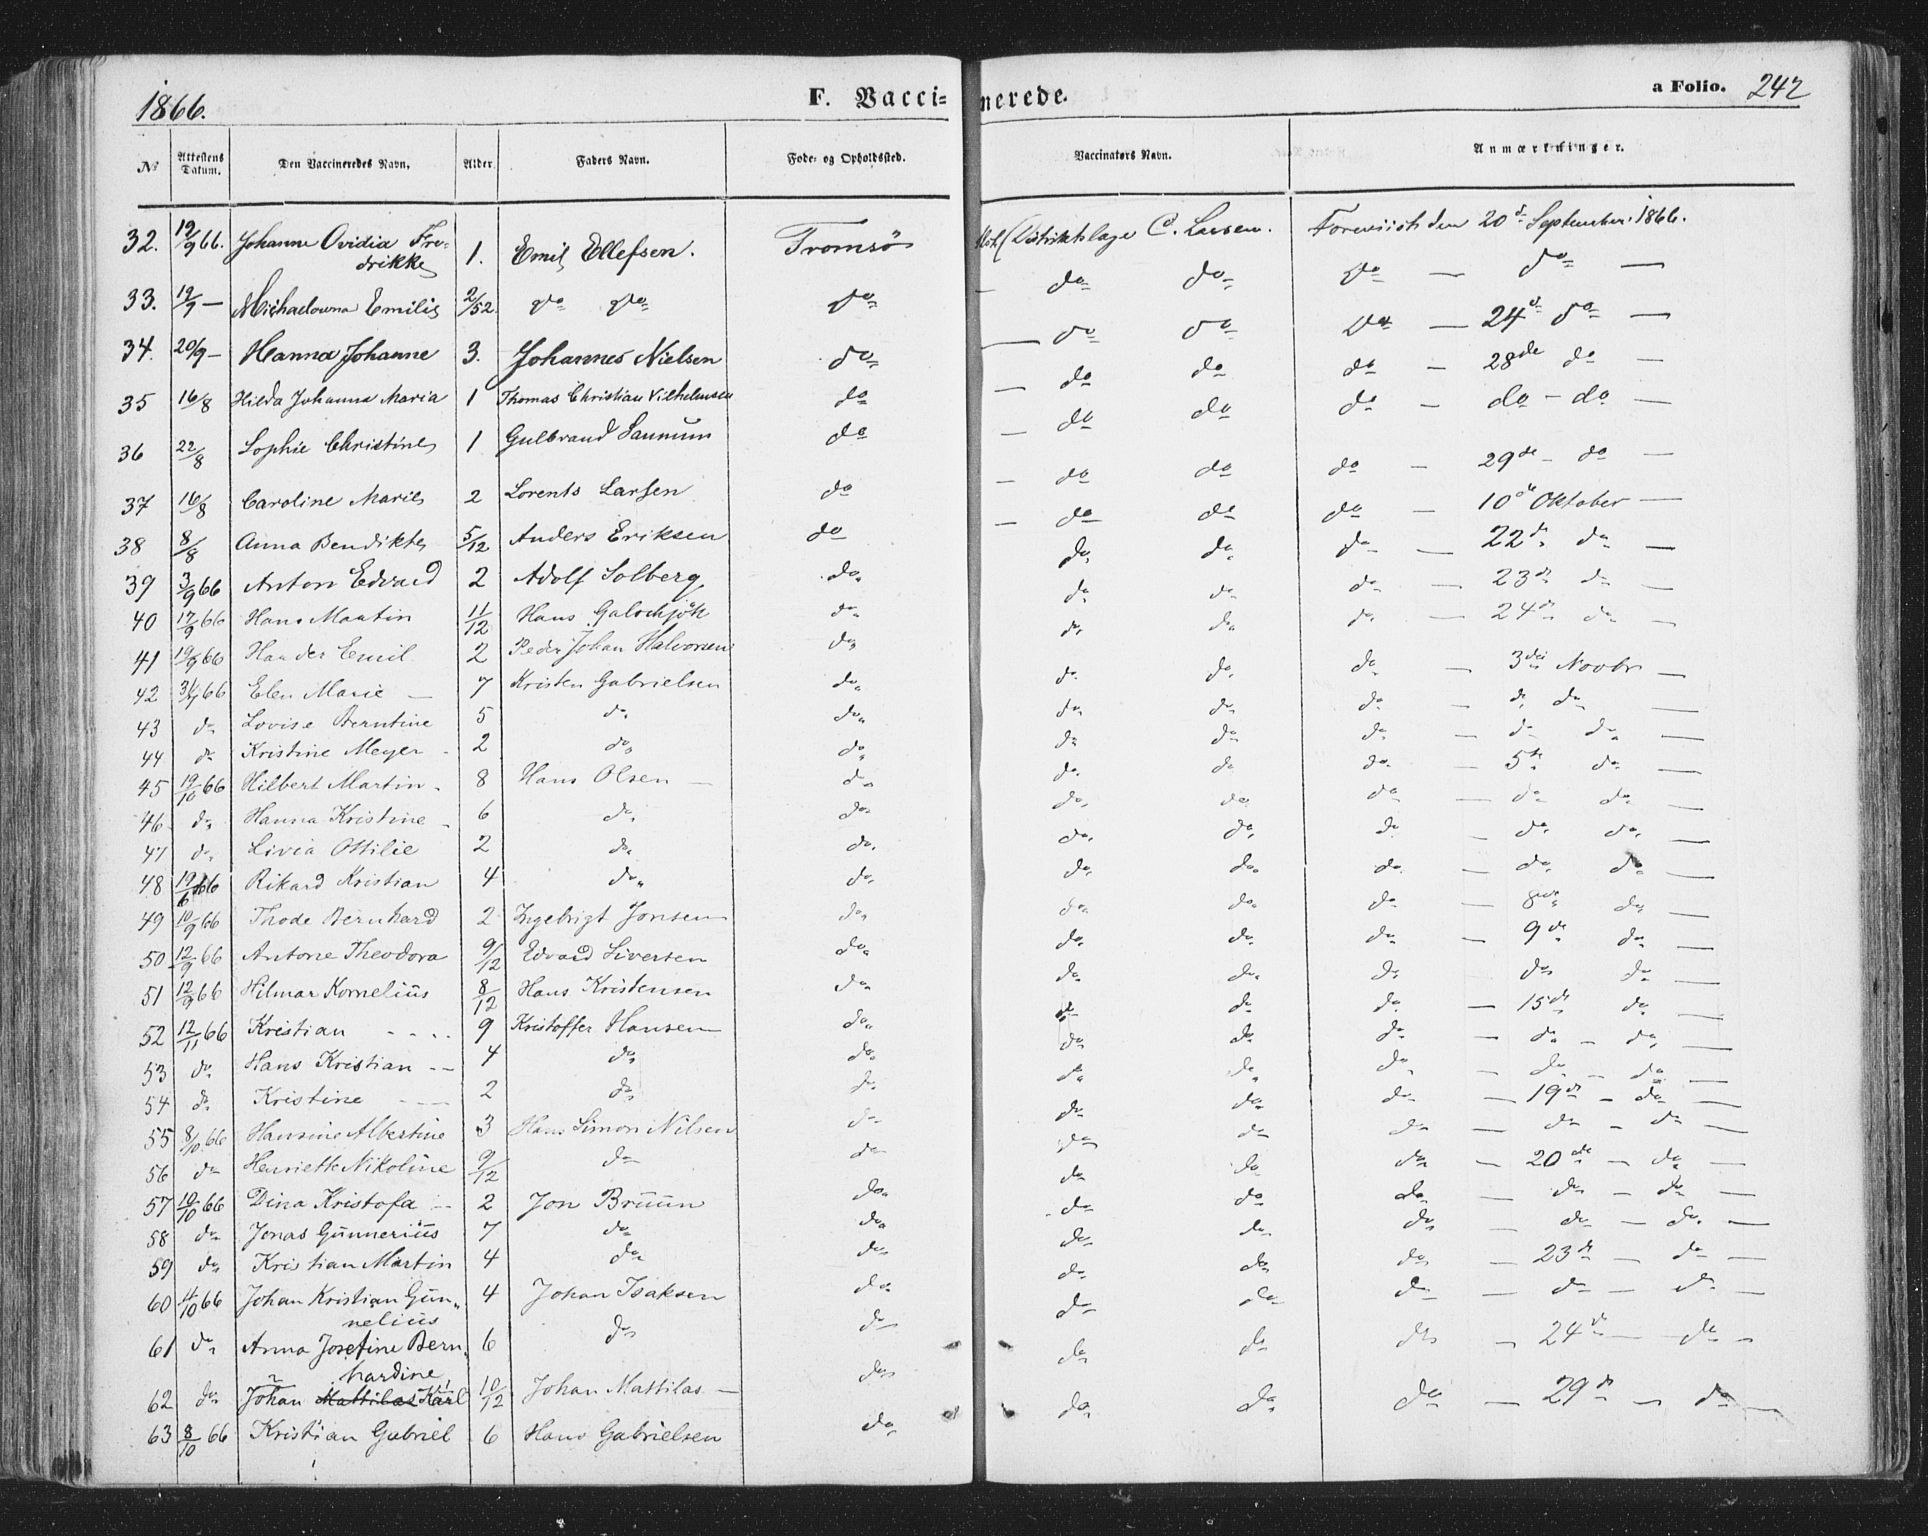 1866. F. Vacci- nerede. a Folio. 242
No Attestens Datum. Den Vaccineredes Navn. Alder. Faders Navn. Føde- og Opholdssted. Vaccinators Navn. Anmærkninger.
32. 19/9 66. Johanne Ovidia Fre- 1. Emil Ellefsen. Tromsø C. Larsen. Foreviist den 20de September 1866.
drikke
33. 19/9 — Emilie 2/52 do do do — do do do — do —
34. 20/9 — Hanna Johanne 3. Johannes Nielsen do — do do do — 24de do —
35 16/8 Hilda Johanna Maria 1 Thomas Christian Vilhelmsen do — do do do — 28de do —
36 22/8 Sophie Christine 1 Gulbrand do — do do do — do — do —
37 16/8 Caroline Marie 2 Lorents Larsen do — do do do — 29de — do —
38 8/8 Anna Bendikte 5/12 Anders Eriksen do — do do do — 10de Oktober —
39 3/9 66 Anton Edvard 2 Adolf Solberg do do do do — 22de do —
40 17/9 66 Hans Martin 11/12 Hans do do do do — 23de do —
41 19/9 66 Emil 2 Peder Johan Halvorsen do do do do — 24de do —
42 31/7 66 Elen Marie — 7 Kristen Gabrielsen do do do do — 3die Novbr —
43 do Lovise Berntine 5 do do do do do — do do —
44 do Kristine Meyer - 2 do do do do do — do do —
45 19/10 66 Hilbert Martin - 8 Hans Olsen — do do do do — 5te do —
46 do Hanna Kristine - 6 do do do do do — do do —
47 do Livia Ottilie 2 do do do do do — do do —
48 19/6 66 Rikard Kristian 4 do do do do do — do do —
49 10/9 66 Thode Bernhard 2 Ingebrigt Jonsen do do do do — 8de do —
50 12/9 66 Antone Theodora 9/12 Edvard Siversen do do do do — 9de do —
51 12/9 66 Hilmar Kornelius 8/12 Hans Kristensen do do do do do do —
52 12/11 66 Kristian - - - - 9 Kristoffer Hansen do do do do — 15de do —
53 do Hans Kristian - - 4 do do do do do — do — do —
54 do Kristine - - - 2 do do do do do — do — do —
55 8/10 66 Hansine Albertine 3 Hans Simon Nilsen do do do do — 19de — do —
56 do Henriette Nikoline 9/12 do do do do do — do — do —
57 10/10 66 Dina Kristofa - 2 Jon Bruun do do do do — 20de — do —
58 do Jonas Gunnerius 7 do do do do do — do — do —
59 do Kristian Martin 4 do do do do do — do — do —
60 11/10 66 Johan Kristian Gun- 4 Johan Isaksen do do do do — 23de — do —
nelius
61 do Anna Josefine Bern- 6 do do do do do — do — do —
hardine
62 do Johan Mattilas Karl 10/12 Johan Mattilas — do do do do — 24de — do —
63 8/10 66 Kristian Gabriel 6 Hans Gabrielsen do do do do — 29de — do —